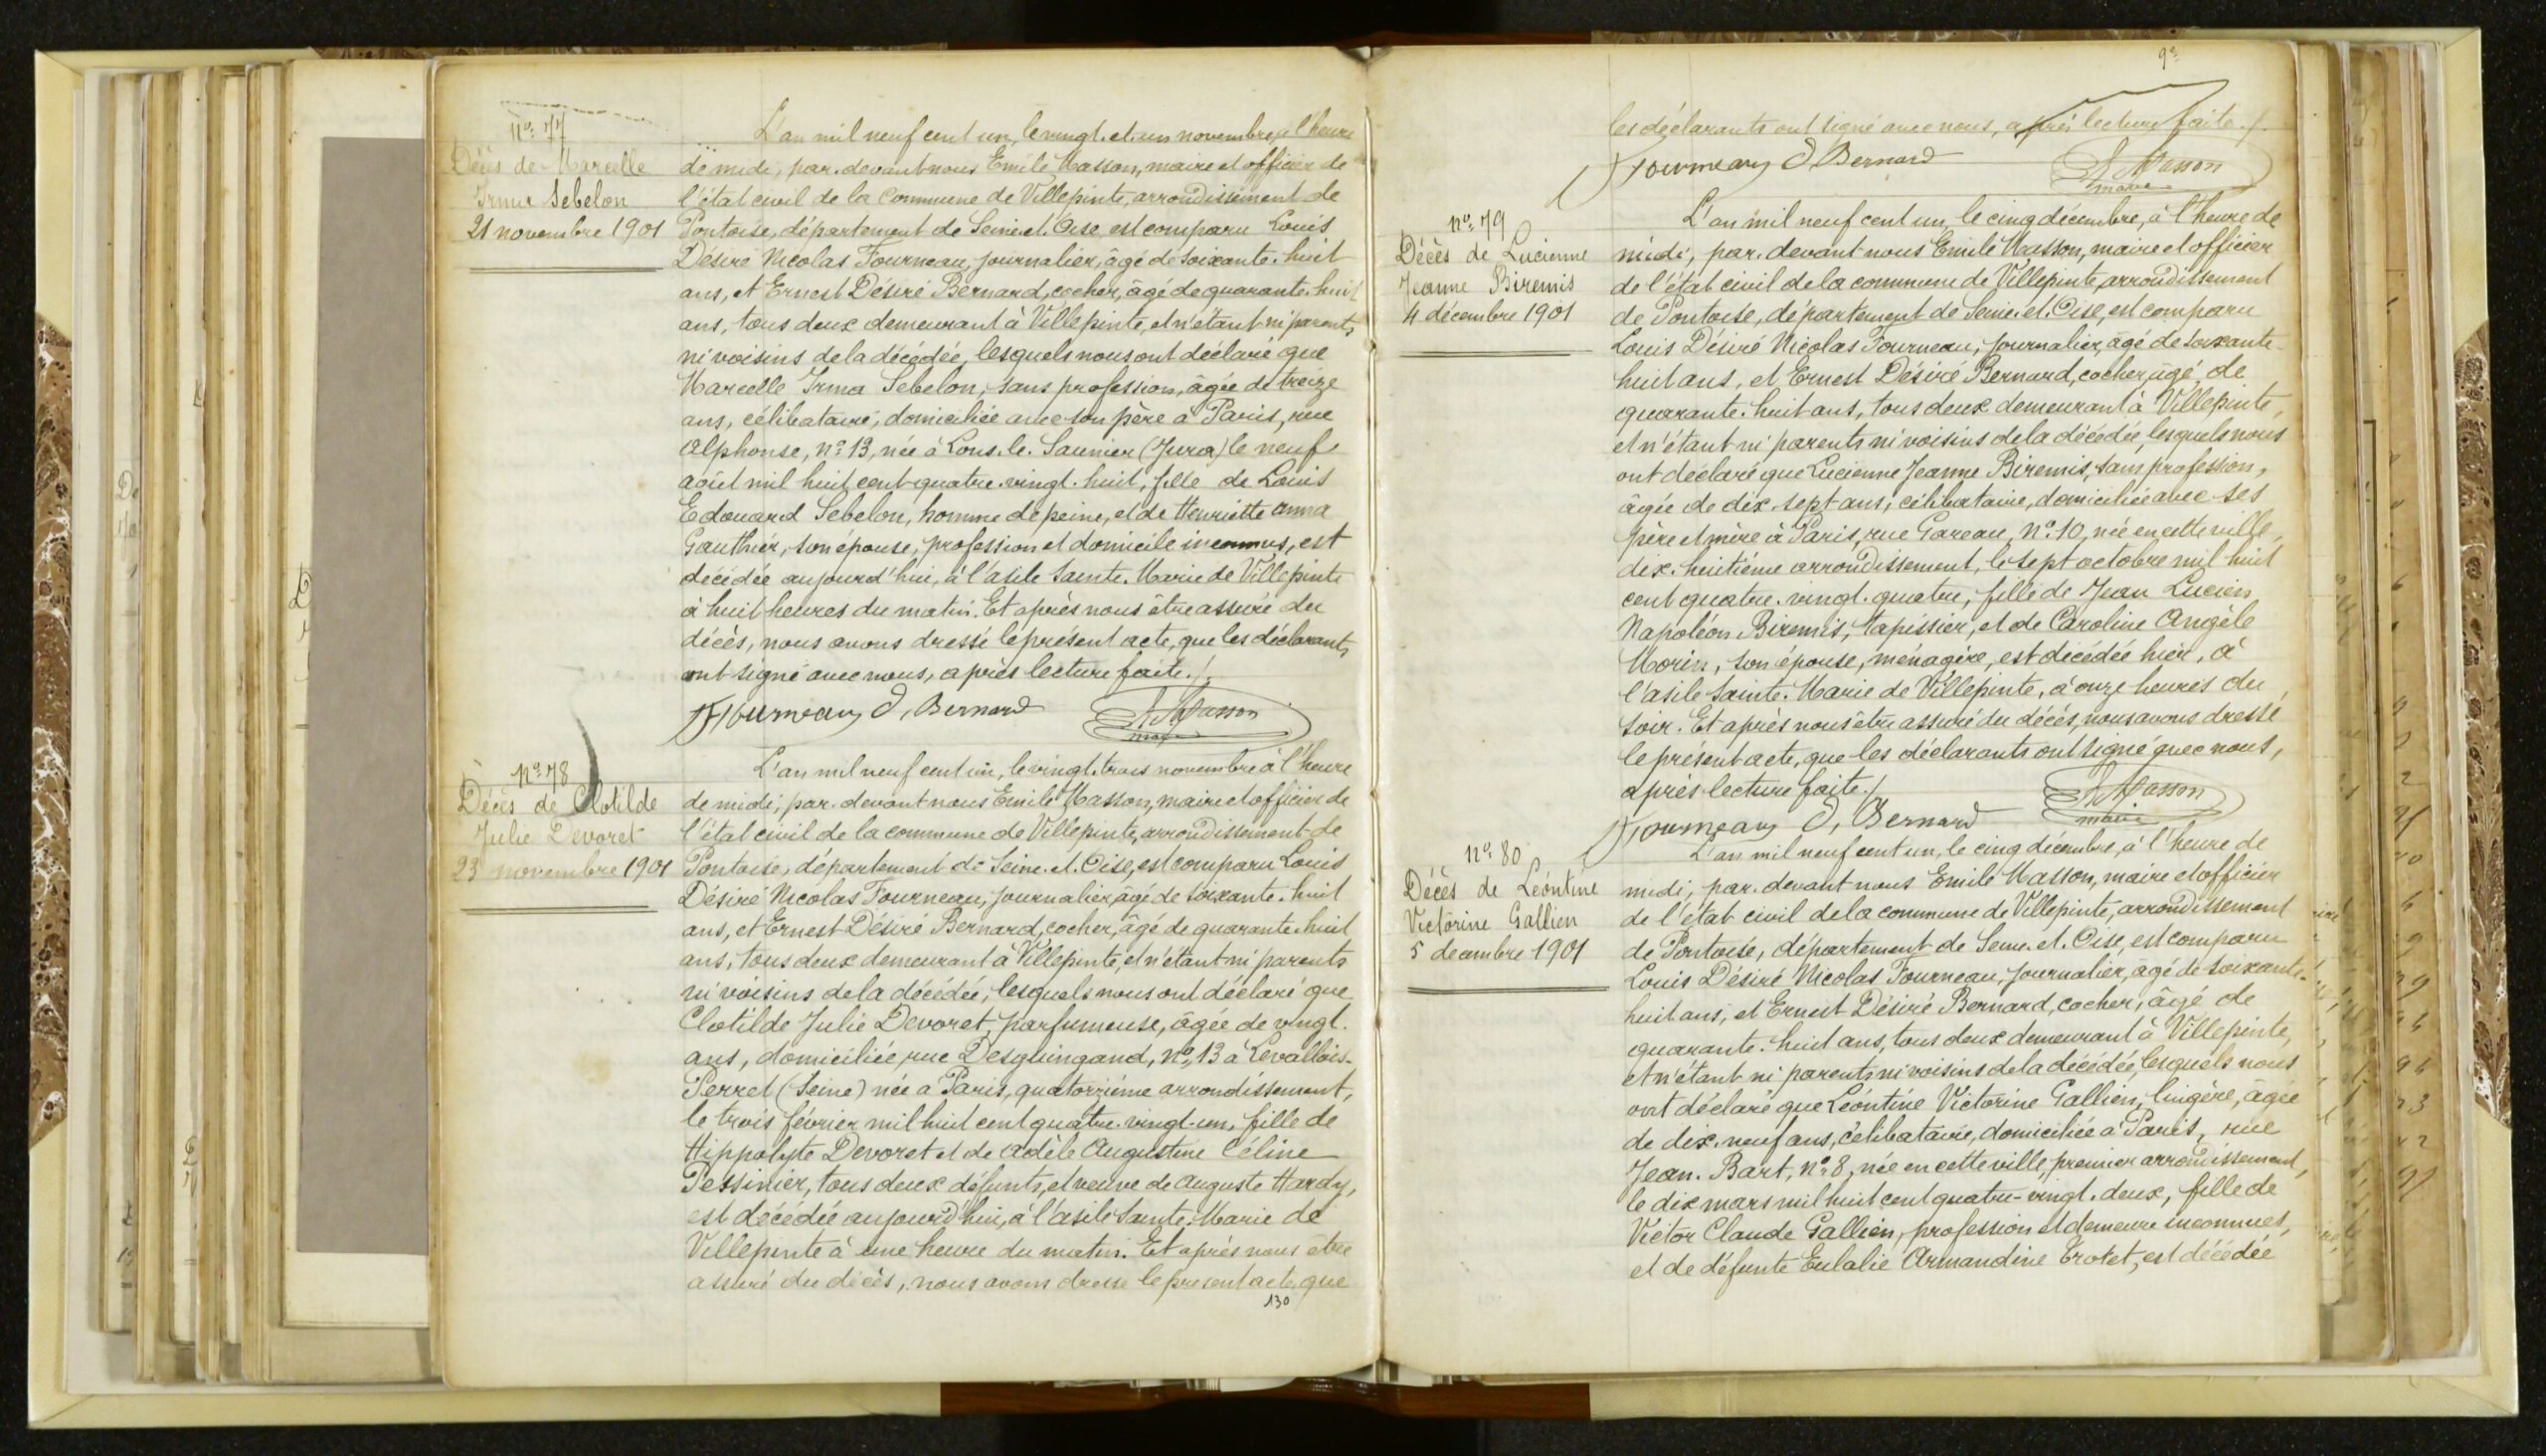 nº 77
Décès de Marcelle
Irma Sebelon
21 novembre 1901
L'an mil neuf cent un, le vingt et un novembre, à l'heure
de midi, par devant nous Emile Masson, maire et officier de
l'état civil de la commune de Villepinte, arrondissement de
Pontoise, département de Seine et Oise, est comparu Louis
Désiré Nicolas Fourneau, journalier, âgé de soixante-huit
ans, et Ernest Désiré Bernard, cocher, âgé de quarante-huit
ans, tous deux demeurant à Villepinte, et n'étant ni parents,
ni voisins de la décédée, lesquels nous ont déclaré que
Marcelle Irma Sebelon, sans profession, âgée de treize
ans, célibataire, domiciliée avec son père à Paris, rue
Alphonse, nº 13, née à Lons-le-Saunier (Jura) le neuf
août mil huit cent quatre-vingt-huit, fille de Louis
Edouard Sebelon, homme de peine, et de Henriette Anna
Gauthier, son épouse, profession et domicile inconnus, est
décédée aujourd'hui, à l'asile Sainte-Marie de Villepinte
à huit heures du matin. Et après nous être assuré du
décès, nous avons dressé le présent acte, que les déclarants
ont signé avec nous, après lecture faite./.
Fourneau D, Bernard Masson
maire
nº 78
Décès de Clotilde
Julie Devoret
23 novembre 1901
L'an mil neuf cent un, le vingt-trois novembre à l'heure
de midi, par devant nous Emile Masson, maire et officier de
l'état civil de la commune de Villepinte, arrondissement de
Pontoise, département de Seine-et-Oise, est comparu Louis
Désiré Nicolas Fourneau, journalier, âgé de soixante-huit
ans, et Ernest Désiré Bernard, cocher, âgé de quarante-huit
ans, tous deux demeurant à Villepinte, et n'étant ni parents
ni voisins de la décédée, lesquels nous ont déclaré que
Clotilde Julie Devoret, parfumeuse, âgée de vingt
ans, domiciliée, rue Desguingand, nº 13 à Levallois-
Perret (Seine) née à Paris, quatorzième arrondissement,
le trois février mil huit cent quatre-vingt-un, fille de
Hippolyte Devoret et de Adèle Augustine Céline
Pessinier, tous deux défunts, et veuve de Auguste Hardy,
est décédée aujourd'hui, à l'asile Sainte-Marie de
Villepinte à une heure du matin. Et après nous être
assuré du décès, nous avons dressé le présent acte que
130
les déclarants ont signé avec nous, après lecture faite./.
Fourneau D, Bernard Masson
maire
nº 79
Décès de Lucienne
Jeanne Biremis
4 décembre 1901
L'an mil neuf cent un, le cinq décembre, à l'heure de
midi, par devant nous Emile Masson, maire et officier
de l'état civil de la commune de Villepinte, arrondissement
de Pontoise, département de Seine-et-Oise, est comparu
Louis Désiré Nicolas Fourneau, journalier, âgé de soixante-
huit ans, et Ernest Désiré Bernard, cocher, âgé de
quarante-huit ans, tous deux demeurant à Villepinte,
et n'étant ni parents ni voisins de la décédée, lesquels nous
ont déclaré que Lucienne Jeanne Biremis, sans profession,
âgée de dix-sept ans, célibataire, domiciliée avec ses
père et mère à Paris, rue Gareau, nº 10, née en cette ville,
dix-huitième arrondissement, le sept octobre mil huit
cent quatre-vingt-quatre, fille de Jean Lucien
Napoléon Biremis, tapissier, et de Caroline Angèle
Morin, son épouse, ménagère, est décédée hier, à
l'asile Sainte-Marie de Villepinte, à onze heures du
soir. Et après nous être assuré du décès, nous avons dressé
le présent acte, que les déclarants ont signé avec nous,
après lecture faite./.
Fourneau D, Bernard Masson
maire
nº 80
Décès de Léontine
Victorine Gallien
5 décembre 1901
L'an mil neuf cent un, le cinq décembre, à l'heure de
midi, par devant nous Emile Masson, maire et officier
de l'état civil de la commune de Villepinte, arrondissement
de Pontoise, département de Seine-et-Oise, est comparu
Louis Désiré Nicolas Fourneau, journalier, âgé de soixante-
huit ans, et Ernest Désiré Bernard, cocher, âgé de
quarante-huit ans, tous deux demeurant à Villepinte,
et n'étant ni parents ni voisins de la décédée, lesquels nous
ont déclaré que Léontine Victorine Gallien, lingère, âgée
de dix-neuf ans, célibataire, domiciliée à Paris, rue
Jean-Bart, nº 8, née en cette ville, premier arrondissement,
le dix mars mil huit cent quatre-vingt-deux, fille de
Victor Claude Gallien, profession et demeure inconnues,
et de défunte Eulalie Armandine Trotet, est décédée